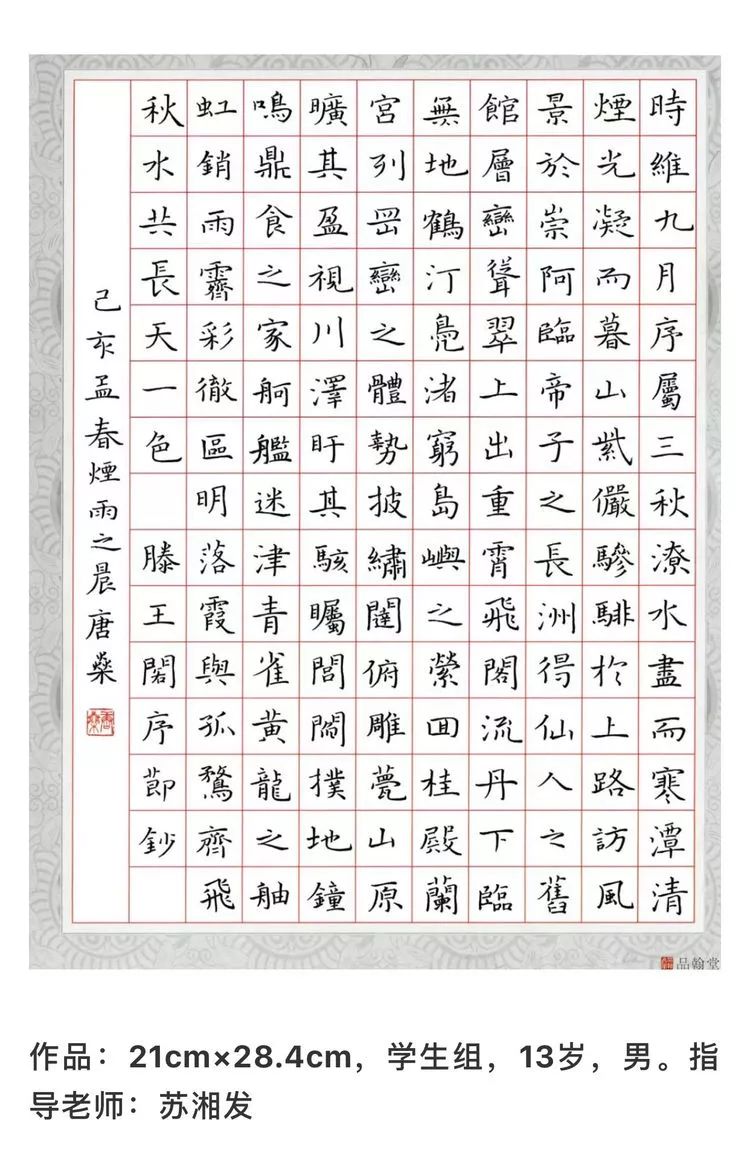 時維九月序屬三秋潦水盡而寒潭清
煙光凝而暮山紫儼驂騑於上路訪風
景於崇阿臨帝子之長洲得仙人之舊
館層巒聳翠上出重霄飛閣流丹下臨
無地鶴汀鳧渚窮島嶼之縈囬桂殿蘭
宮列岡巒之體勢披繡闥俯雕甍山原
曠其盈視川澤盱其駭矚閭閻撲地鐘
鳴鼎食之家舸艦迷津青雀黃龍之舳
虹銷雨霽彩徹區明落霞與孤鶩齊飛
秋水共長天一色 滕王閣序節鈔
己亥孟春煙雨之晨唐燊
品翰堂
作品：21cm×28.4cm，学生组，13岁，男。指
导老师：苏湘发